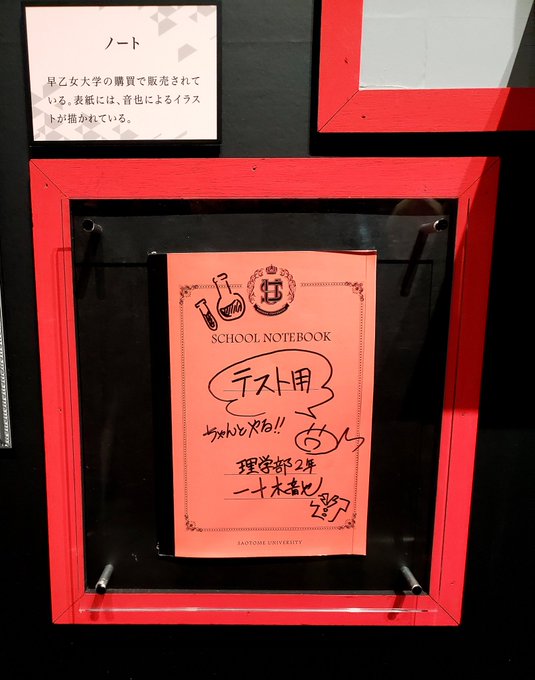 ノート
早乙女大学の購買で販売されて
いる。表紙には、音也によるイラス
トが描かれている。
SCHOOL NOTEBOOK
テスト用
ちゃんとやる!!
理学部2年
一十木音也
SAOTOME UNIVERSITY